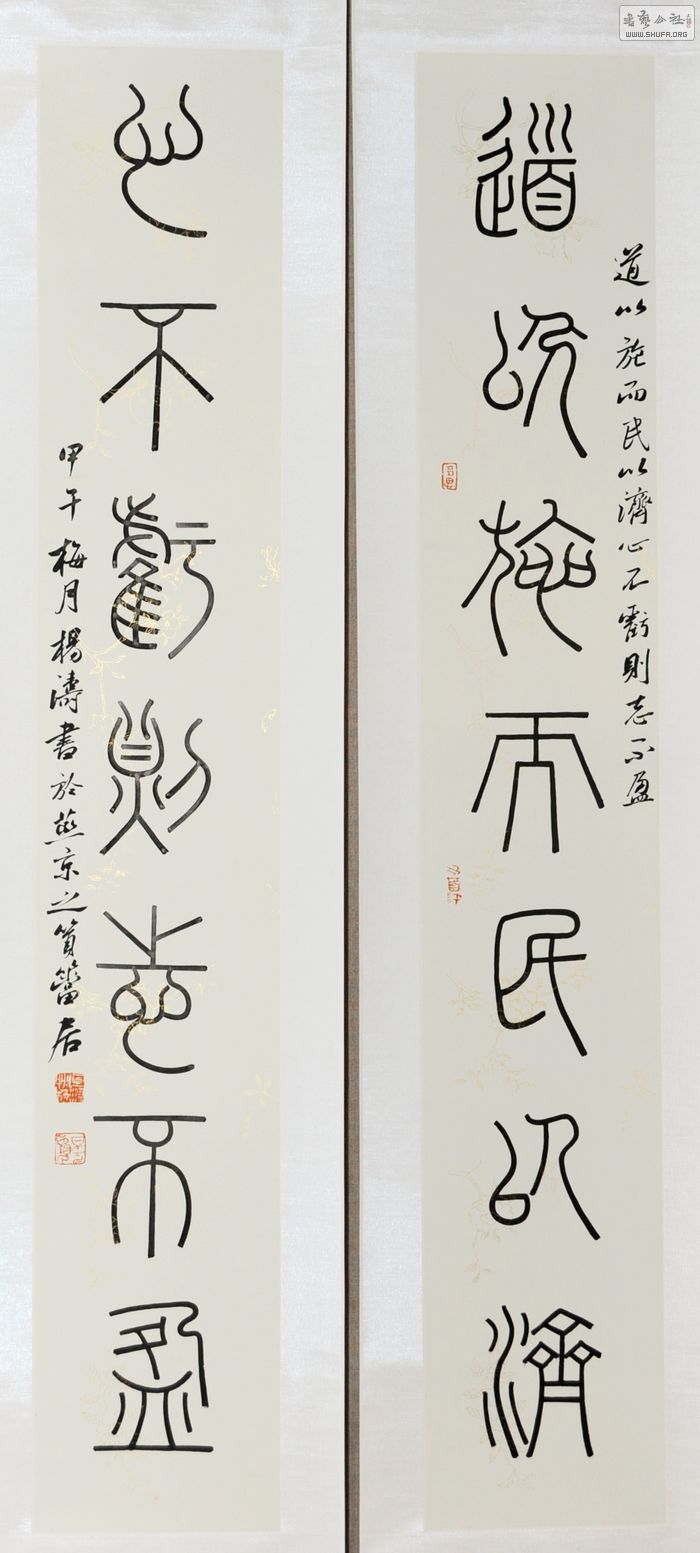 書藝公社
WWW.SHUFA.ORG
道以施而民以濟
道以施而民以濟心不虧則志不盈
心不虧則志不盈
甲午梅月楊濤書於燕京之篔簹居